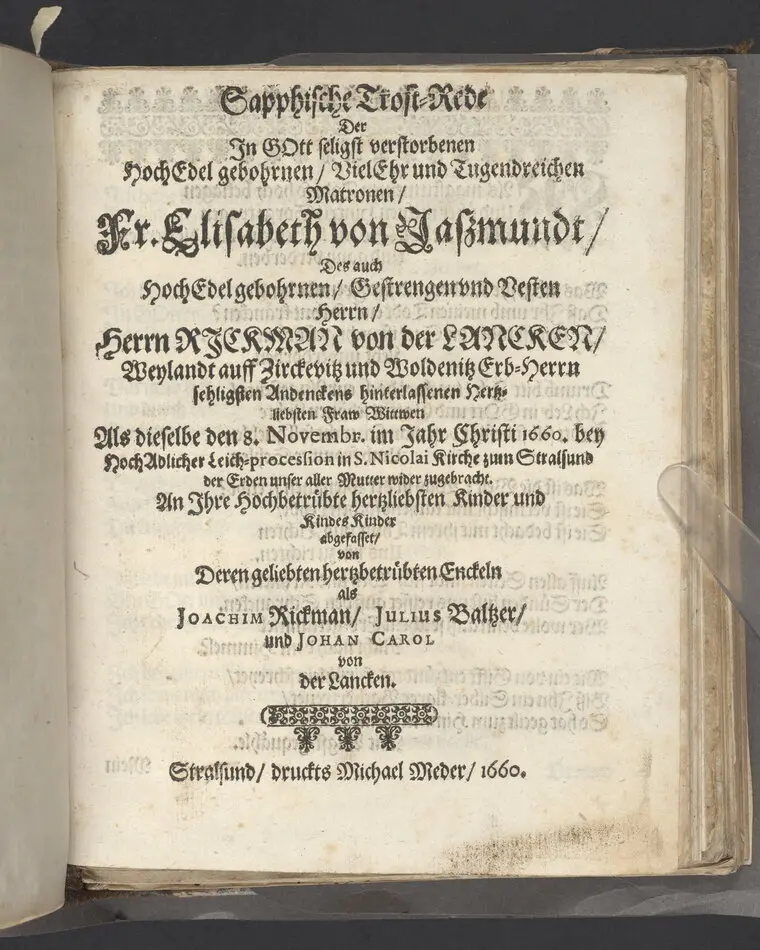 Sapphische Trost-Rede
Der
In GOtt seligst verstorbenen
HochEdel gebohrnen / VielEhr und Tugendreichen
Matronen /
Fr. Elisabeth von Jaßmundt /
Des auch
HochEdel gebohrnen / Gestrengen vnd Vesten
Herrn /
Herrn RICKMAN von der LANCKEN /
Weylandt auff Zirckevitz und Woldenitz Erb-Herrn
sehligsten Andenckens hinterlassenen Hertz-
liebsten Fraw Wittwen
Als dieselbe den 8. Novembr. im Jahr Christi 1660. bey
HochAdlicher Leich-procession in S. Nicolai Kirche zum Stralsund
der Erden unser aller Mutter wider zugebracht.
An Ihre Hochbetrübte hertzliebsten Kinder und
Kindes Kinder
abgefasset /
von
Deren geliebten hertzbetrübten Enckeln
als
JOACHIM Rickman / JULIUS Baltzer /
und JOHAN CAROL
von
der Lancken.
Stralsund / druckts Michael Meder / 1660.